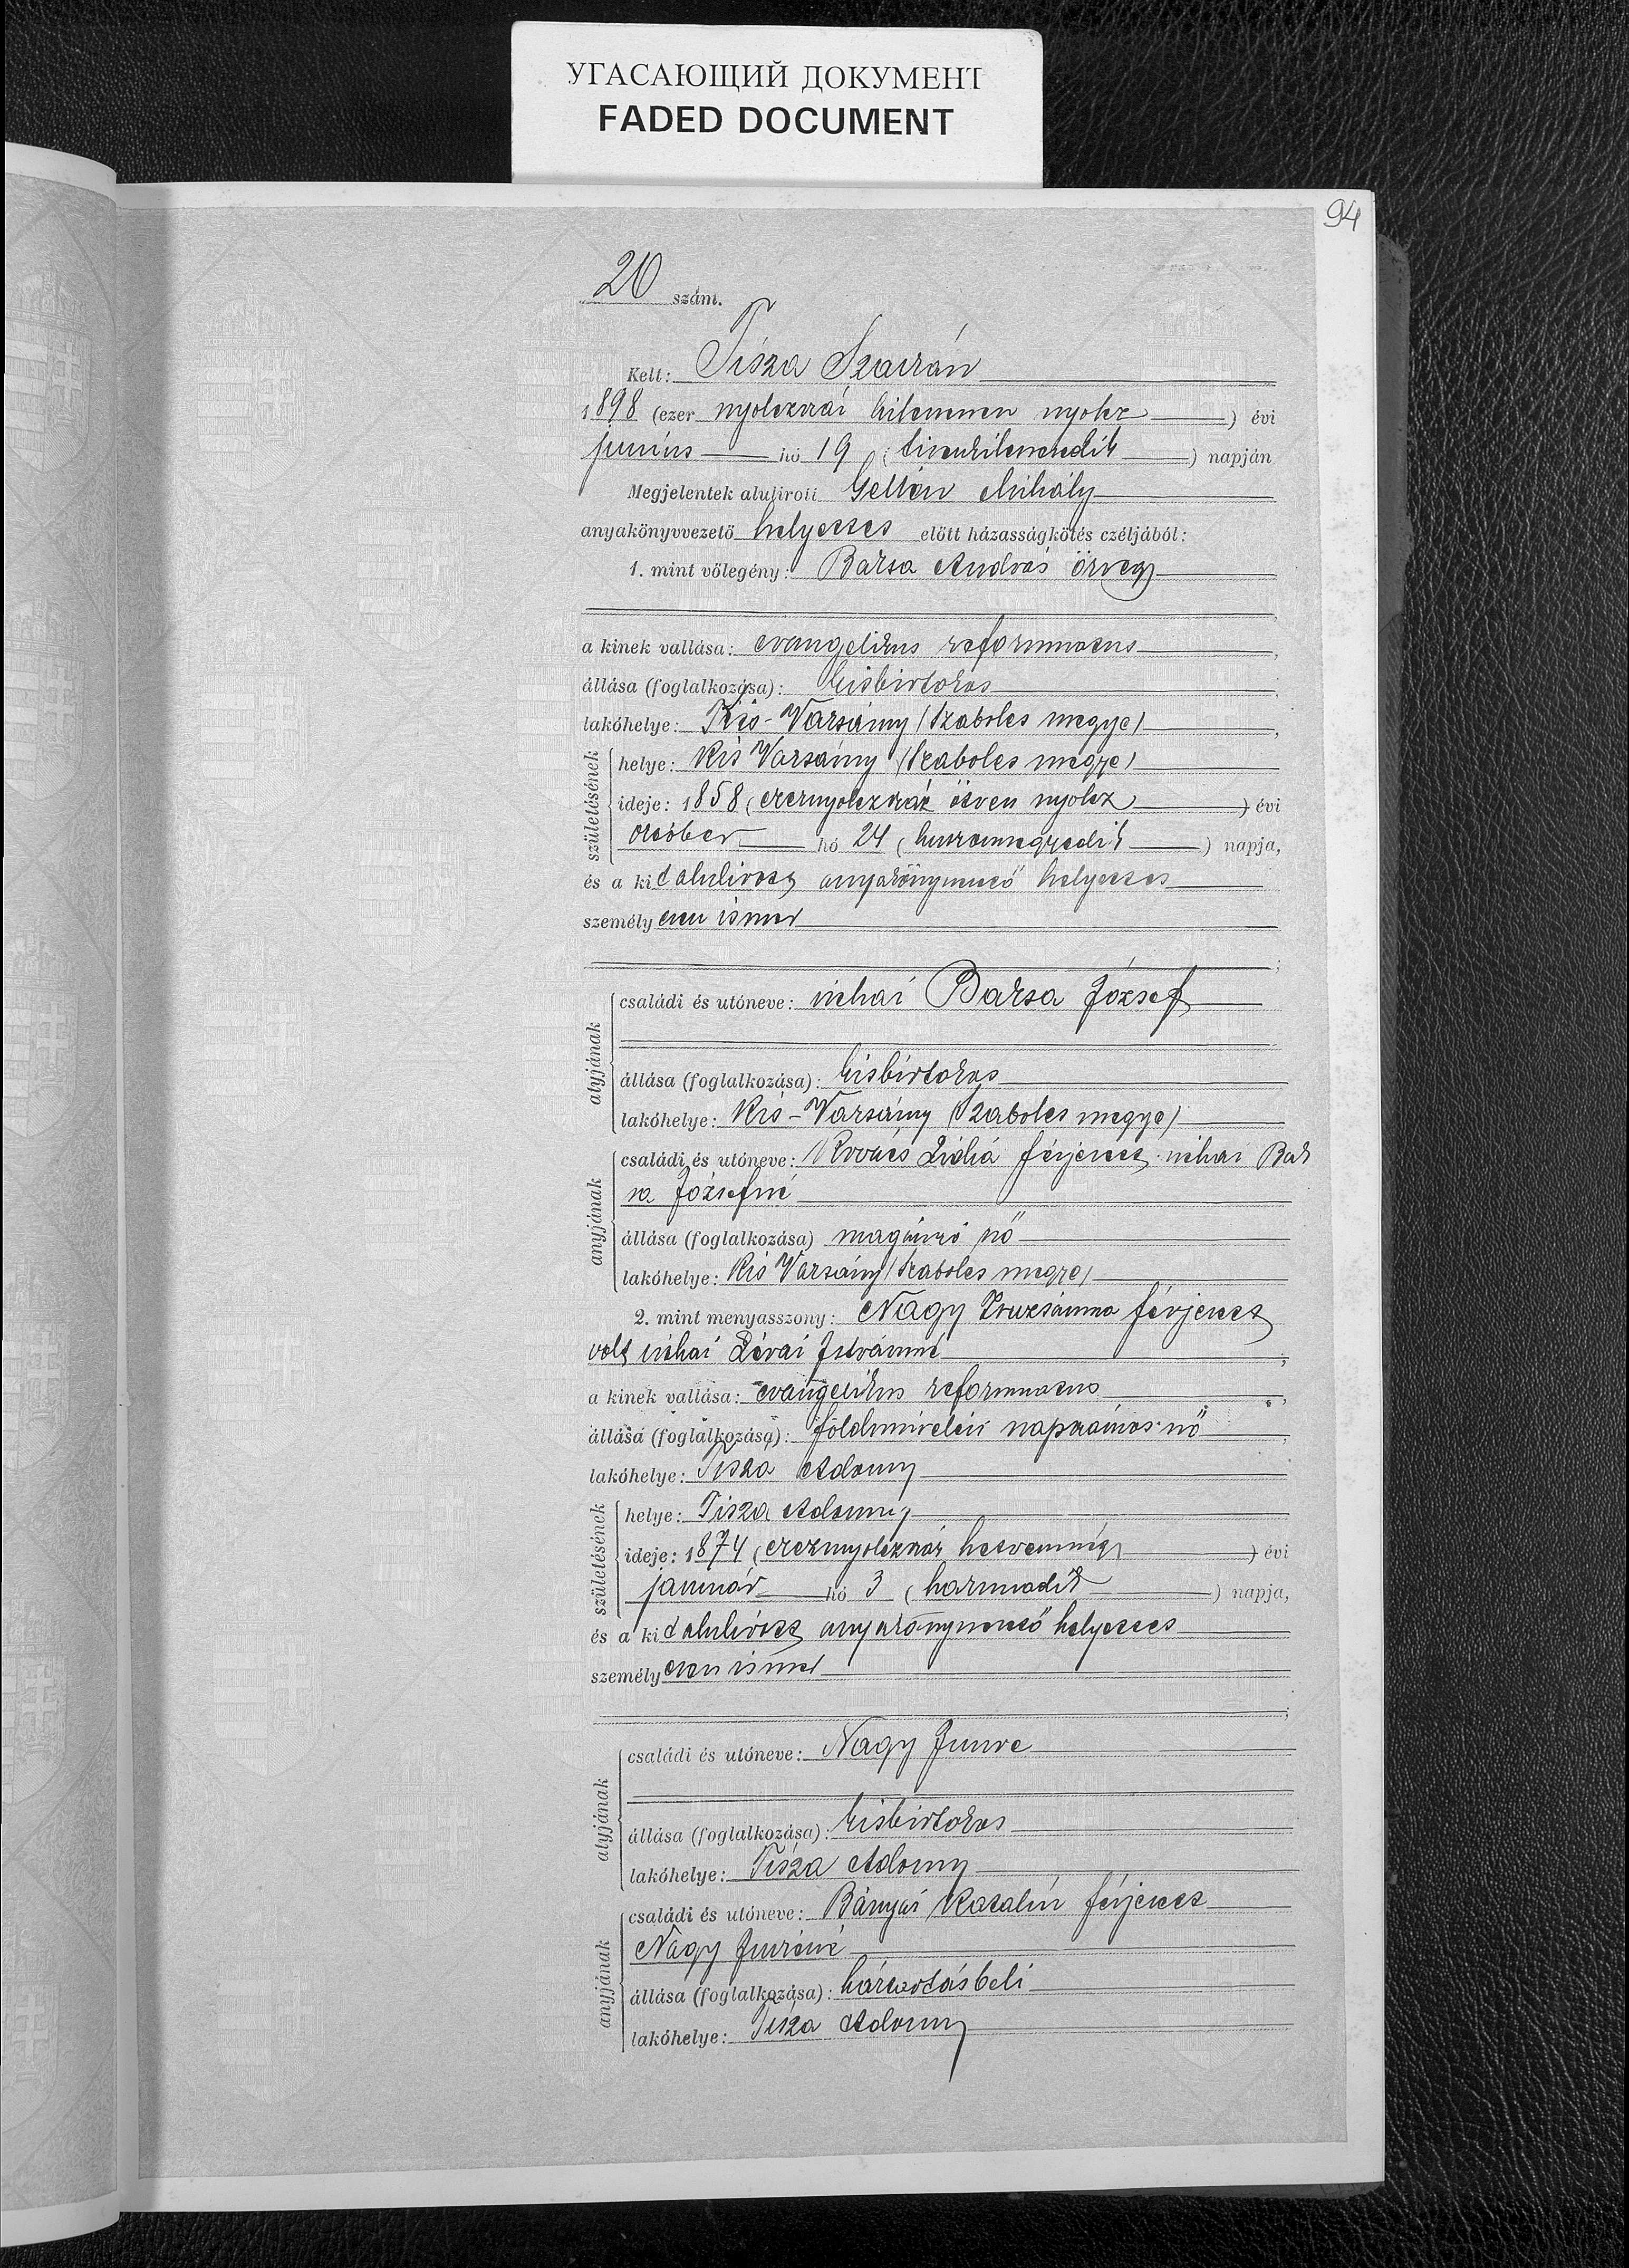 УГАСАЮЩИЙ ДОКУМЕНТ
FADED DOCUMENT
94
20 szám.
Kelt: Tisza Szalván
1898 (ezer nyolczszáz kilenczven nyolcz) évi
junius hó 19 (tizenkilenczedik) napján
Megjelentek alulirott Gellén Mihály
anyakönyvvezető helyettes előtt házasságkötés czéljából:
1. mint vőlegény: Baksa András özvegy
a kinek vallása: evangelikus reformmatus
állása (foglalkozása): kisbirtokos
lakóhelye: Kis-Varsány (Szabolcs megye)
születésének
helye: Kis Varsány (Szabolcs megye)
ideje: 1858 (ezernyolczszáz ötven nyolcz) évi
október hó 24 (huszonnegyedik) napja,
és a kit alulirott anyakönyvvezető helyettes
személyesen ismer
atyjának
családi és utóneve: néhai Baksa József
állása (foglalkozása): kisbirtokos
lakóhelye: Kis-Varsány (Szabolcs megye)
anyjának
családi és utóneve: Kovács Lidia férjezett néhai Bak
sa Józsefné
állása (foglalkozása) magánzó nő
lakóhelye: Kis Varsány (Szabolcs megye)
2. mint menyasszony: Nagy Zsuzsánna férjezett
volt néhai Lévai Istvánné
a kinek vallása: evangelikus reformmatus
állása (foglalkozása): földmivelési napszámos nő
lakóhelye: Tisza Adony
születésének
helye: Tisza Adony
ideje: 1874 (ezernyolczszáz hetvennégy) évi
január hó 3 (harmadik) napja,
és a kit alulirott anyakönyvvezető helyettes
személyesen ismer
atyjának
családi és utóneve: Nagy Imre
állása (foglalkozása): kisbirtokos
lakóhelye: Tisza Adony
anyjának
családi és utóneve: Bányai Katalin férjezett
Nagy Imréné
állása (foglalkozása): háztartásbeli
lakóhelye: Tisza Adony